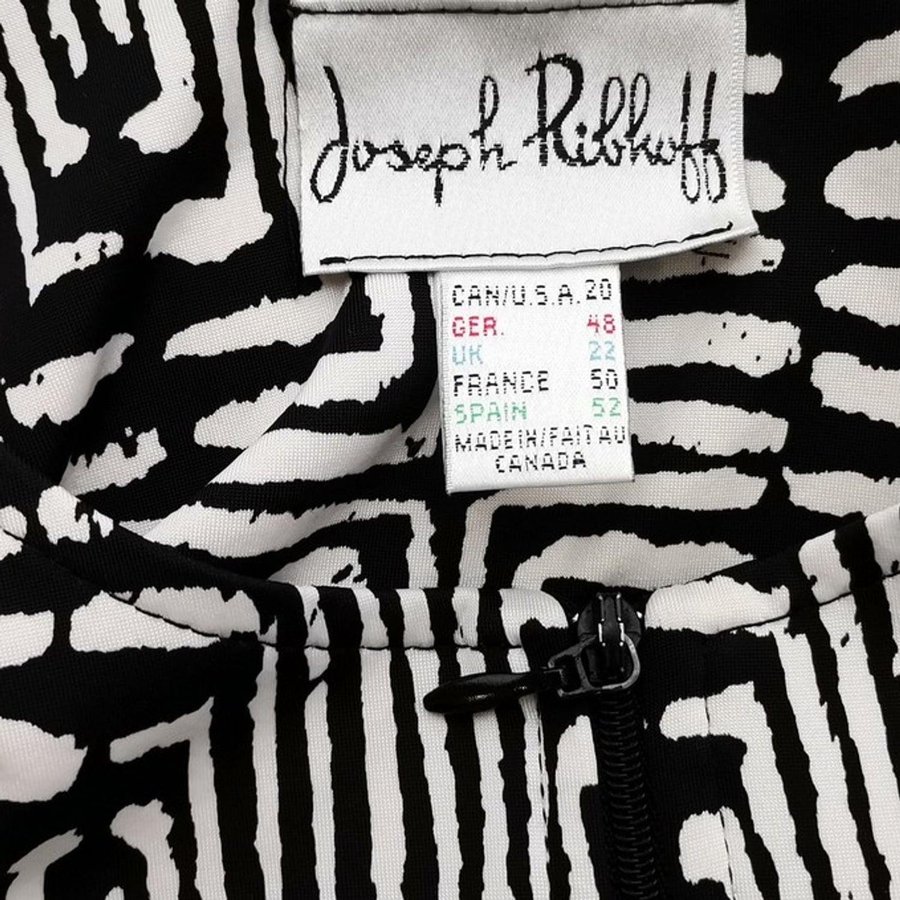 Joseph Ribkoff
CAN/U.S.A. 20
GER. 48
UK 22
FRANCE 50
SPAIN 52
MADE IN/FAIT AU
CANADA